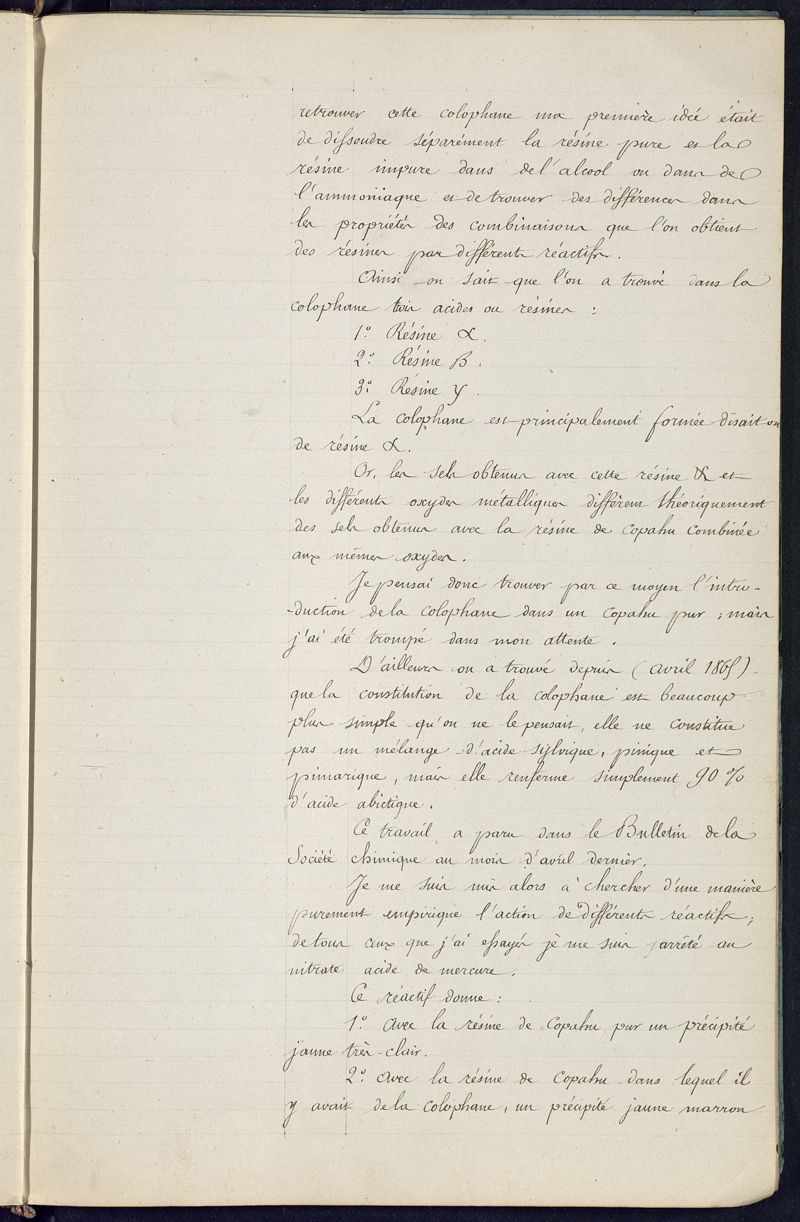 retrouver cette colophane ma première idée était
de dissoudre séparément la résine pure et la
résine impure dans de l'alcool ou dans de
l'ammoniaque et de trouver des différences dans
les propriétés des combinaisons que l'on obtient
des résines par différents réactifs.
Ainsi on sait que l'on a trouvé dans la
colophane trois acides ou résines :
1º Résine α.
2º Résine B.
3º Résine γ.
La colophane est principalement formée disait on
de résine α.
Or, les sels obtenus avec cette résine α et
les différents oxydes métalliques diffèrent théoriquement
des sels obtenus avec la résine de Copahu combinée
aux mêmes oxydes.
Je pensai donc trouver par ce moyen l'intro-
-duction de la colophane dans un Copahu pur ; mais
j'ai été trompé dans mon attente.
D'ailleurs on a trouvé depuis (avril 1865)
que la constitution de la colophane est beaucoup
plus simple qu'on ne le pensait, elle ne constitue
pas un mélange d'acide sylvique, pinique et
pimarique, mais elle renferme simplement 90 %
d'acide abiétique.
Ce travail a paru dans le Bulletin de la
Société chimique au mois d'avril dernier.
Je me suis mis alors à chercher d'une manière
purement empirique l'action de différents réactifs ;
de tous ceux que j'ai essayés je me suis arrêté au
nitrate acide de mercure.
Ce réactif donne :
1º Avec la résine de Copahu pur un précipité
jaune très-clair.
2º Avec la résine de Copahu dans lequel il
y avait de la colophane, un précipité jaune marron